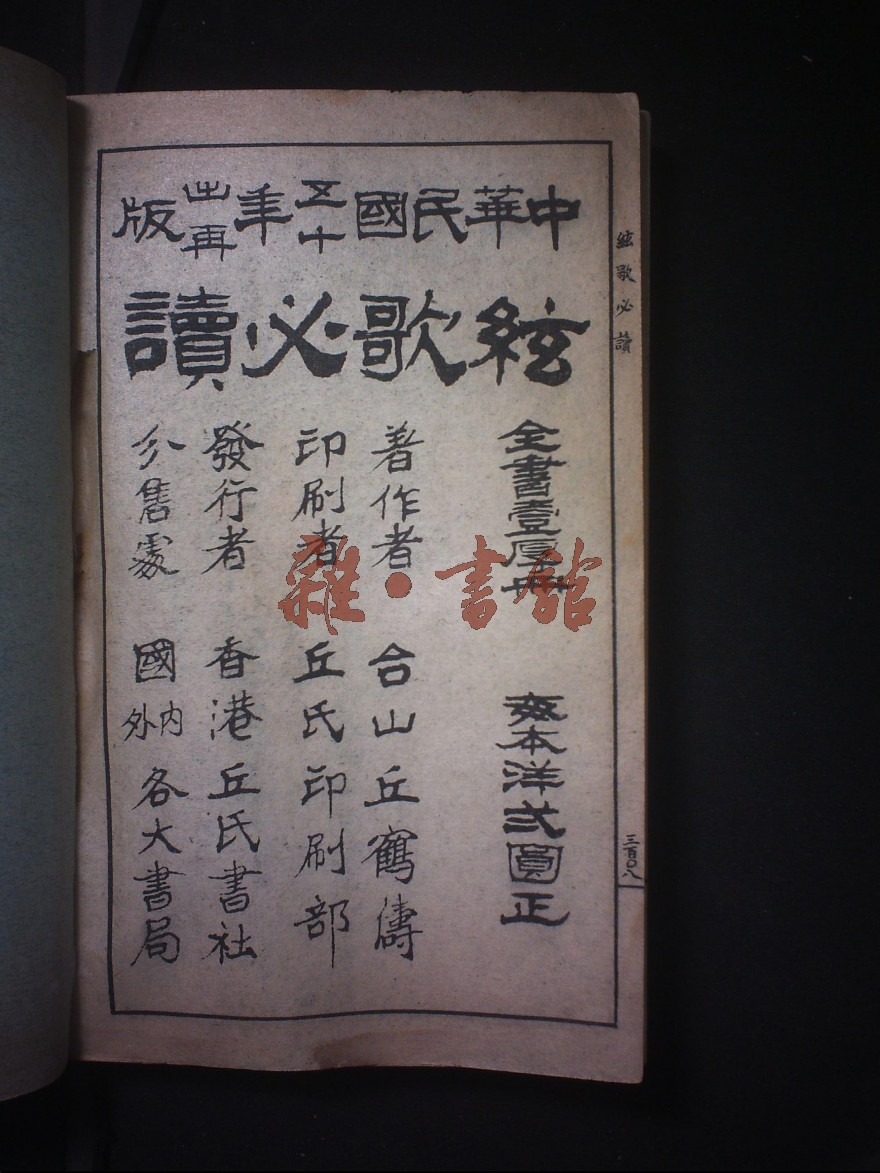 中華民國五十年出再版
絃歌必讀
全書壹厚冊 每本洋弍圓正
著作者 台山丘鶴儔
印刷者 丘氏印刷部
發行者 香港丘氏書社
分售處 國內外各大書局
絃歌必讀
三百〇八
雜·書館